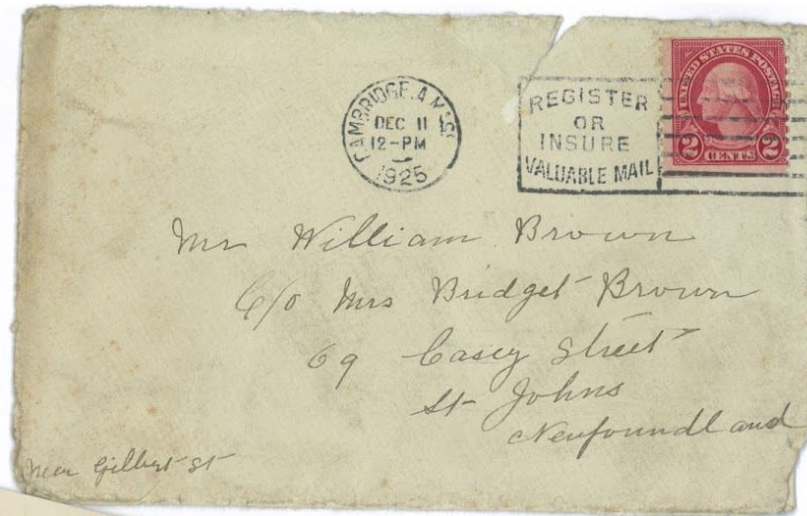 CAMBRIDGE.A MASS
DEC 11
12-PM
1925
REGISTER
OR
INSURE
VALUABLE MAIL
UNITED STATES POSTAGE
2 CENTS 2
Mr William Brown
C/o Mrs Bridget Brown
69 Casey Street
St Johns
Newfoundland
near Gilbert St